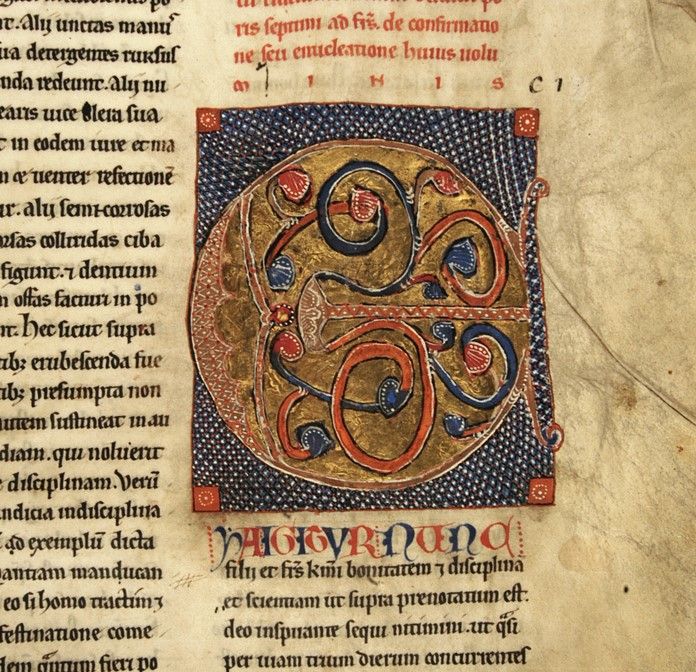 nt. Alij unctas manuſ
detergentes rursuſ
redeunt. Alij nu
uice olera sua
t in eodem iure et ma
uenter refectionē
ur. alij semicorrosas
colliridas ciba
figunt. ⁊ dentium
n offas facturi in po
nt. hec sicut supra
tibꝫ erubescenda fue
tibꝫ presumpta non
sustineat in au
diam. qui noluerit
e disciplinam. Verū
indisciplina
ad exemplū dicta
manducan
eo si homo tractim ⁊
festinatione come
q̄ntum fieri po
ris septimi ad fr̄s. de confirmatio
ne seu enucleatione huius uolu
M I N I S C I
E
HAIGITVR NUNC
filij et fr̄s km̄i bonitatem ⁊ disciplina
et scientiam ut supra prenotatum est.
deo inspirante sequi nitimini. ut q̄si
per uiam trium dierum concurrentes